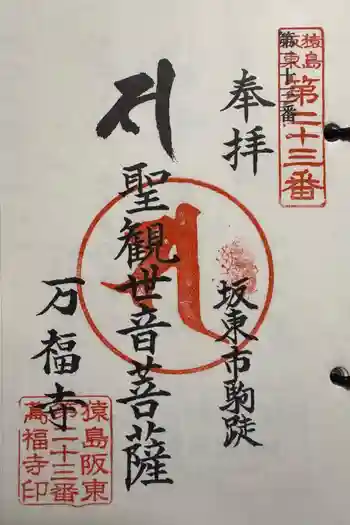 猿島
阪東
第二十三番
奉拝
坂東市駒跿
サ
聖観世音菩薩
万福寺
猿島阪東
第二十三番
萬福寺印